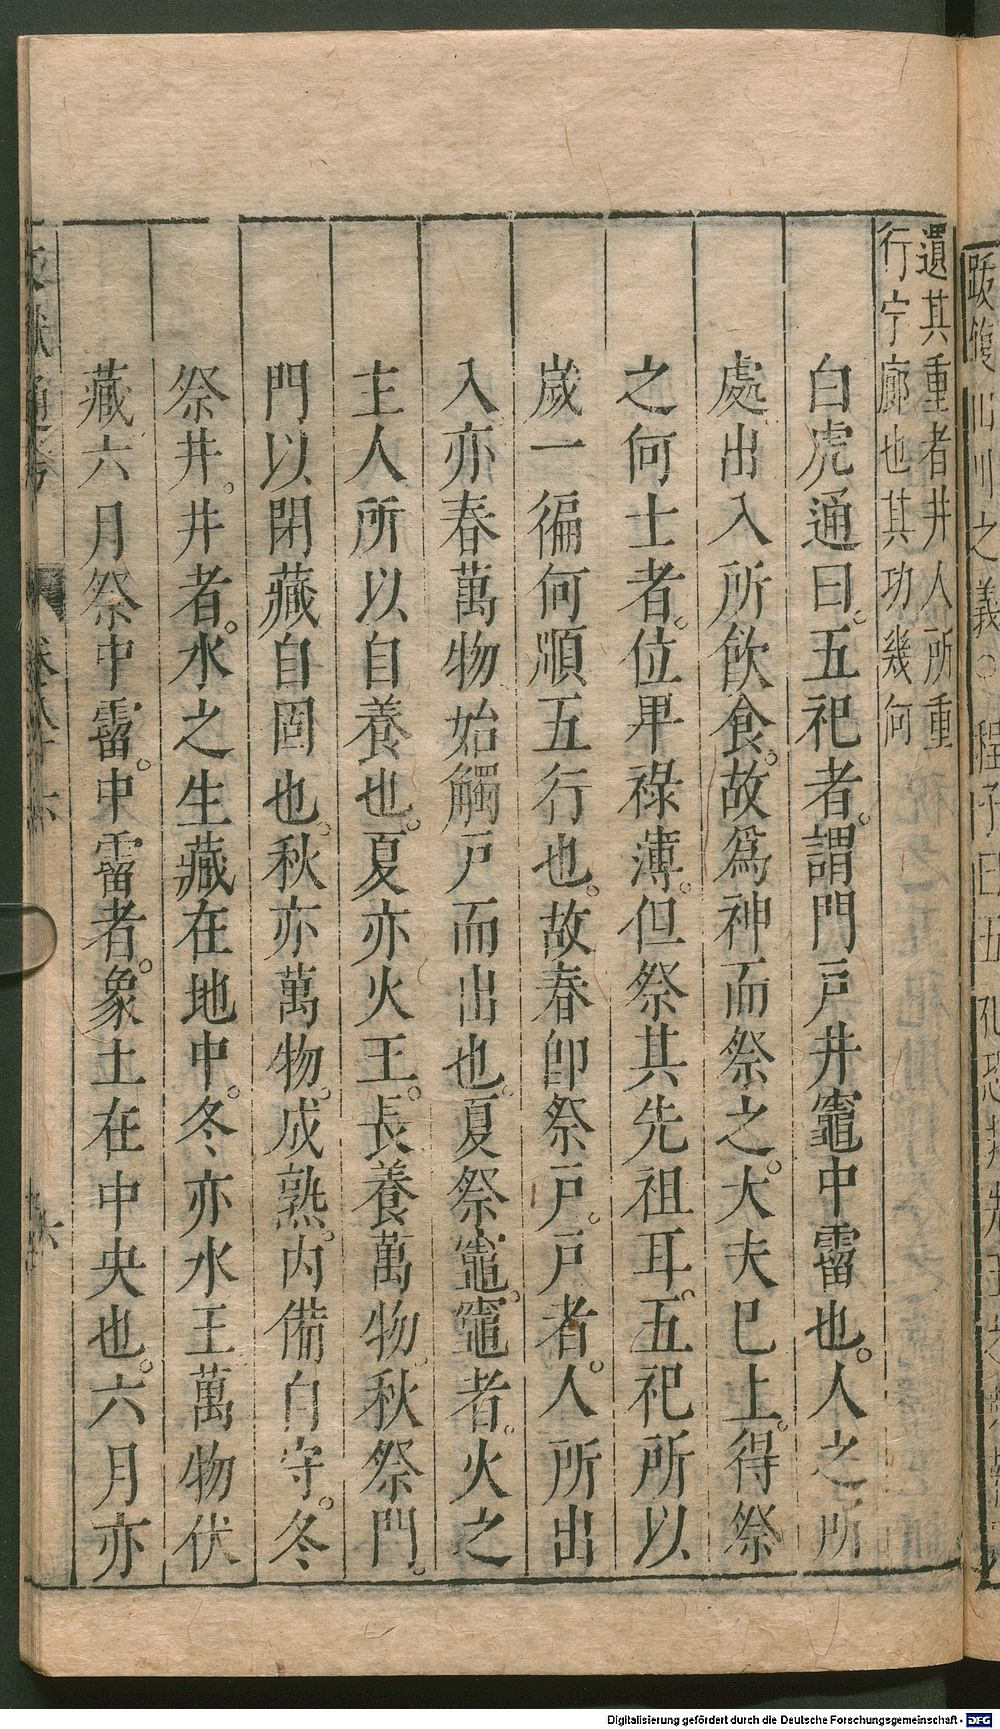 跋
山川之義○程子曰五祀恐
遺其重者井人所重
行宁廊也其功幾何
白虎通曰。五祀者。謂門戸井竈中霤也。人之所
處出入所飲食。故爲神而祭之。大夫巳上。得祭
之何士者。位畀祿薄。但祭其先祖耳。五祀所以
嵗一徧何順五行也。故春卽祭戸。戸者。人所出
入亦春萬物始觸戸而出也。夏祭竈。竈者。火之
主人所以自養也。夏亦火王。長養萬物。秋祭門。
門以閉藏自固也。秋亦萬物。成熟。内備自守。冬
祭井。井者。水之生藏在地中。冬亦水王萬物伏
藏六月祭中霤。中霤者。象土在中央也。六月亦
文獻通考 卷八十六 六
Digitalisierung gefördert durch die Deutsche Forschungsgemeinschaft - DFG